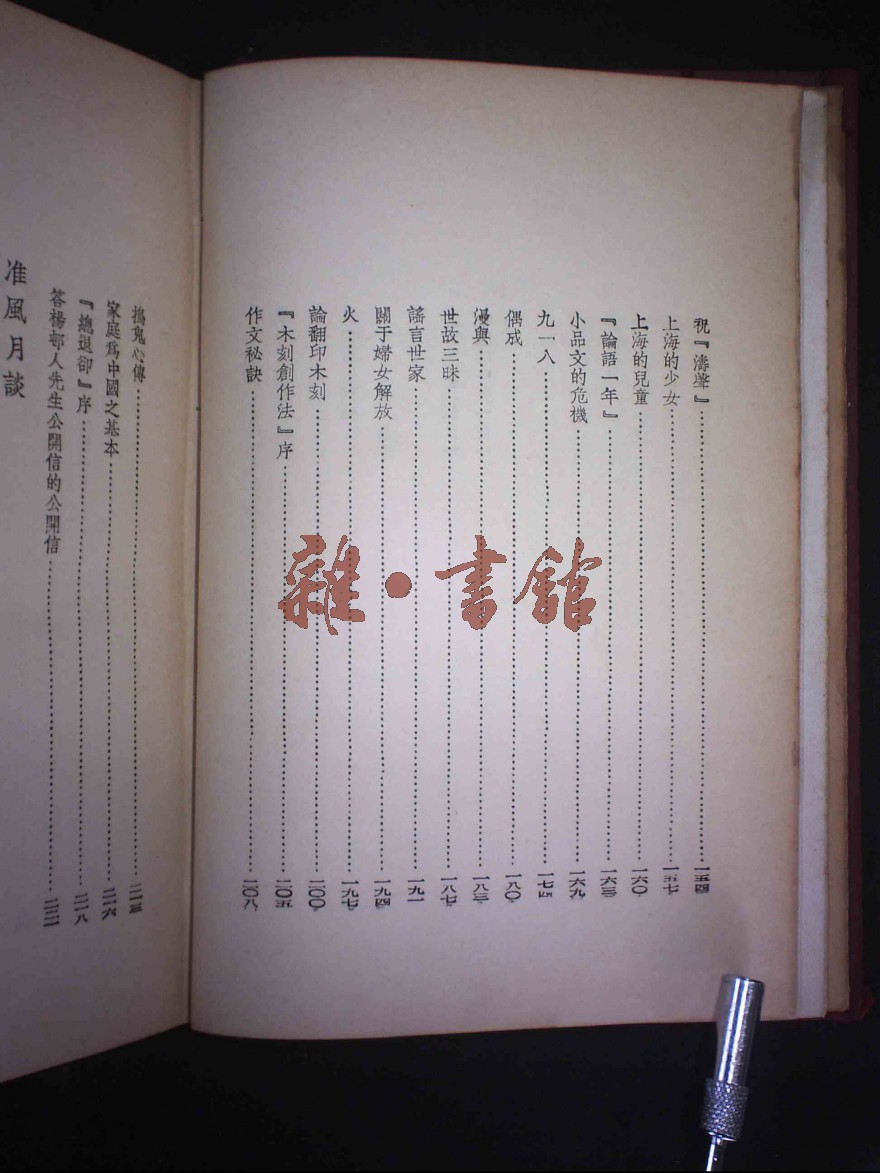 祝『濤聲』……一五四
上海的少女……一五七
上海的兒童……一六〇
『論語一年』……一六三
小品文的危機……一六九
九一八……一七四
偶成……一八〇
漫與……一八三
世故三昧……一八七
謠言世家……一九一
關于婦女解放……一九四
火……一九七
論翻印木刻……二〇〇
『木刻創作法』序……二〇五
作文祕訣……二〇八
搗鬼心傳……二一三
家庭爲中國之基本……二一六
『總退卻』序……二一八
答楊邨人先生公開信的公開信……二二一
准風月談
雜·書館